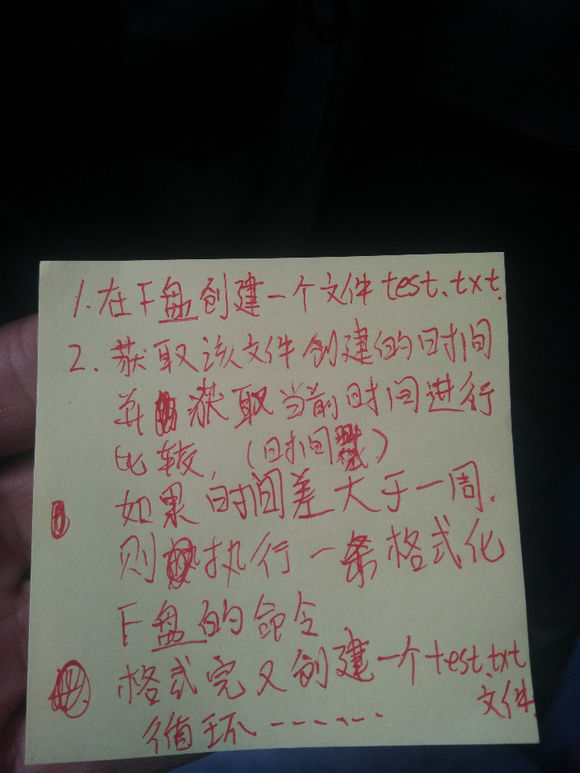 1. 在F盘创建一个文件test.txt.
2. 获取该文件创建的时间
并获取当前时间进行
比较. (时间戳)
如果时间差大于一周.
则执行一条格式化
F盘的命令
格式完又创建一个test.txt
文件.
循环-------